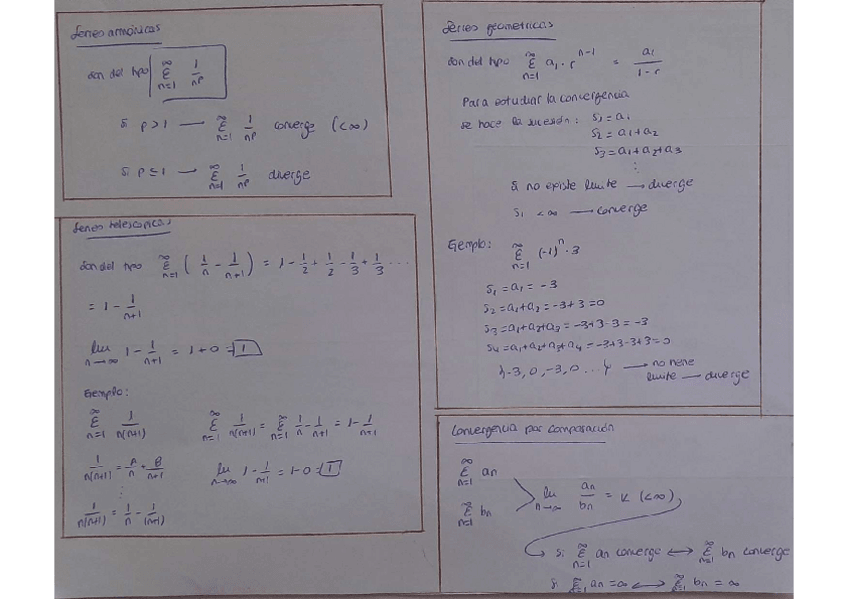 Series armónicas
Son del tipo ∑_{n=1}^{∞} 1/n^p
Si p > 1 → ∑_{n=1}^{∞} 1/n^p converge (<∞)
Si p ≤ 1 → ∑_{n=1}^{∞} 1/n^p diverge
Series telescópicas
Son del tipo ∑_{n=1}^{∞} (1/n - 1/(n+1)) = 1 - 1/2 + 1/2 - 1/3 + 1/3 ...
= 1 - 1/(n+1)
lim_{n→∞} 1 - 1/(n+1) = 1+0 = 1
Ejemplo:
∑_{n=1}^{∞} 1/(n(n+1))
∑_{n=1}^{∞} 1/(n(n+1)) = ∑_{n=1}^{∞} 1/n - 1/(n+1) = 1 - 1/(n+1)
1/(n(n+1)) = A/n + B/(n+1)
lim_{n→∞} 1 - 1/(n+1) = 1-0 = 1
⋮
1/(n(n+1)) = 1/n - 1/(n+1)
Series geométricas
Son del tipo ∑_{n=1}^{∞} a₁ · r^{n-1} = a₁/(1-r)
Para estudiar la convergencia
se hace la sucesión: S₁ = a₁
S₂ = a₁+a₂
S₃ = a₁+a₂+a₃
⋮
Si no existe límite → diverge
Si <∞ → converge
Ejemplo: ∑_{n=1}^{∞} (-1)^n · 3
S₁ = a₁ = -3
S₂ = a₁+a₂ = -3+3 = 0
S₃ = a₁+a₂+a₃ = -3+3-3 = -3
S₄ = a₁+a₂+a₃+a₄ = -3+3-3+3 = 0
{-3, 0, -3, 0 ...} → no tiene
límite → diverge
Convergencia por comparación
∑_{n=1}^{∞} an
lim_{n→∞} an/bn = K (<∞)
∑_{n=1}^{∞} bn
Si ∑_{n=1}^{∞} an converge ↔ ∑_{n=1}^{∞} bn converge
Si ∑_{n=1}^{∞} an = ∞ ↔ ∑_{n=1}^{∞} bn = ∞